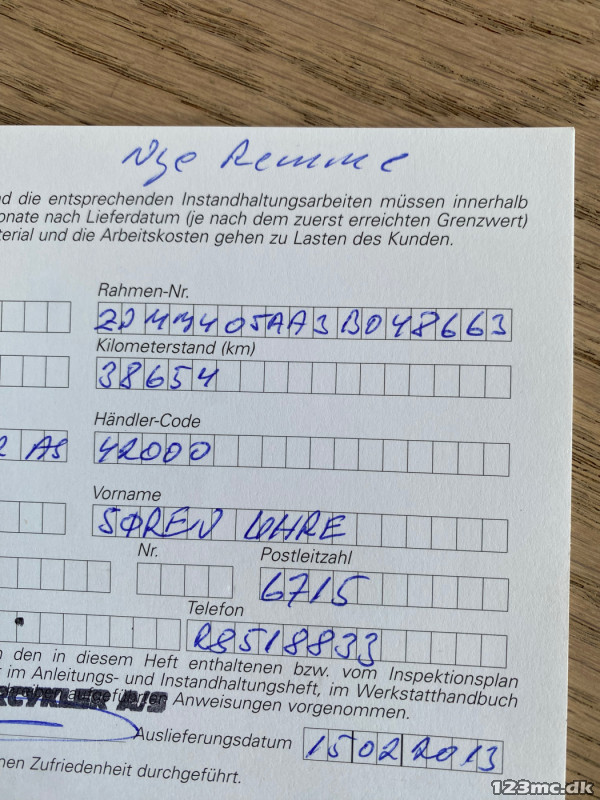 Nye Remme
nd die entsprechenden Instandhaltungsarbeiten müssen innerhalb
onate nach Lieferdatum (je nach dem zuerst erreichten Grenzwert)
terial und die Arbeitskosten gehen zu Lasten des Kunden.
Rahmen-Nr.
ZDMM405AA3B048663
Kilometerstand (km)
38654
Händler-Code
AS 42000
Vorname
SØREN UHRE
Nr. Postleitzahl
6715
Telefon
28518833
n den in diesem Heft enthaltenen bzw. vom Inspektionsplan
r im Anleitungs- und Instandhaltungsheft, im Werkstatthandbuch
aufgeführten Anweisungen vorgenommen.
RCYKLER A/S
Auslieferungsdatum 15022013
nen Zufriedenheit durchgeführt.
123mc.dk